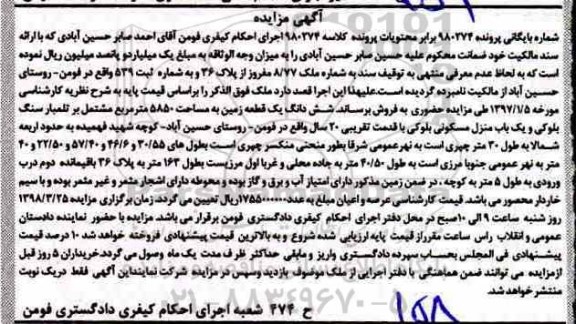 آگهی مزایده
شماره بایگانی پرونده ۹۸۰۲۷۴ برابر محتویات پرونده کلاسه ۹۸۰۲۷۴ اجرای احکام کیفری فومن آقای احمد صابر حسین آبادی که با ارائه
سند مالکیت خود ضمانت محکوم علیه حسین صابر حسین آبادی را به میزان وجه الوثاقه به مبلغ یک میلیاردو پانصد میلیون ریال نموده
است که به لحاظ عدم معرفی منتهی به توقیف سند به شماره ملک ۸/۷۷ مفروز از پلاک ۳۶ و به شماره ثبت ۵۳۹ واقع در فومن- روستای
حسین آباد از مالکیت نامبرده گردیده است.علیهذا این اجرا قصد دارد ملک فوق الذکر را براساس قیمت پایه به شرح نظریه کارشناسی
مورخه ۱۳۹۷/۱/۵ طی مزایده حضوری به فروش برساند. شش دانگ یک قطعه زمین به مساحت ۵۸۵۰ مترمربع مشتمل بر تلمبار سنگ
بلوکی و یک باب منزل مسکونی بلوکی با قدمت تقریبی ۲۰ سال واقع در فومن- روستای حسین آباد- کوچه شهید فهمیده به حدود اربعه
شمالا به طول ۳۰ متر چپری است به نهرعمومی شرقا بطور منحنی منکسر چپری است بطول های ۳۰/۵۵ و ۴۶/۶ و ۵۷/۴۰ و ۲۲/۵۰ و ۴۰
متر به نهر عمومی جنوبا مرزی است به طول ۴۰/۵۰ متر به جاده محلی و غربا اول مرزیست بطول ۱۶۳ متر به پلاک ۳۶ باقیمانده دوم درب
ورودی به طول ۵ متر به کوچه، در ضمن زمین مذکور دارای امتیاز آب و برق و گاز بوده ومحوطه دارای اشجار مثمر و غیر مثمر بوده و با سیم
خاردار محصور می باشد. قیمت کارشناسی عرصه و اعیان مبلغ به عدد ریال تعیین می گردد. زمان برگزاری مزایده ۱۳۹۸/۳/۲۵
روز شنبه ساعت ۹ الی ۱۰صبح در محل دفتر اجرای احکام کیفری دادگستری فومن برقرار می باشد. مزایده با حضور نماینده دادستان
عمومی و انقلاب راس ساعت مقرراز قیمت پایه ارزیابی شده شروع و به بالاترین قیمت پیشنهادی فروخته خواهد شد. ۱۰ درصد قیمت
پیشنهادی فی المجلس بحساب سپرده دادگستری واریز و مابقی حداکثر ظرف مدت یک ماه وصول می گردد.خریداران ۵ روز قبل
ازمزایده می توانند ضمن هماهنگی با دفتر اجرایی از ملک موصوف بازدید وسپس در مزایده شرکت نمایند.این آگهی فقط دریک نوبت
منتشر خواهد شد.
ح ۴۷۴ شعبه اجرای احکام کیفری دادگستری فومن
۰۲۱-۸۸۳۴۹۶۷۰
۱۵۸